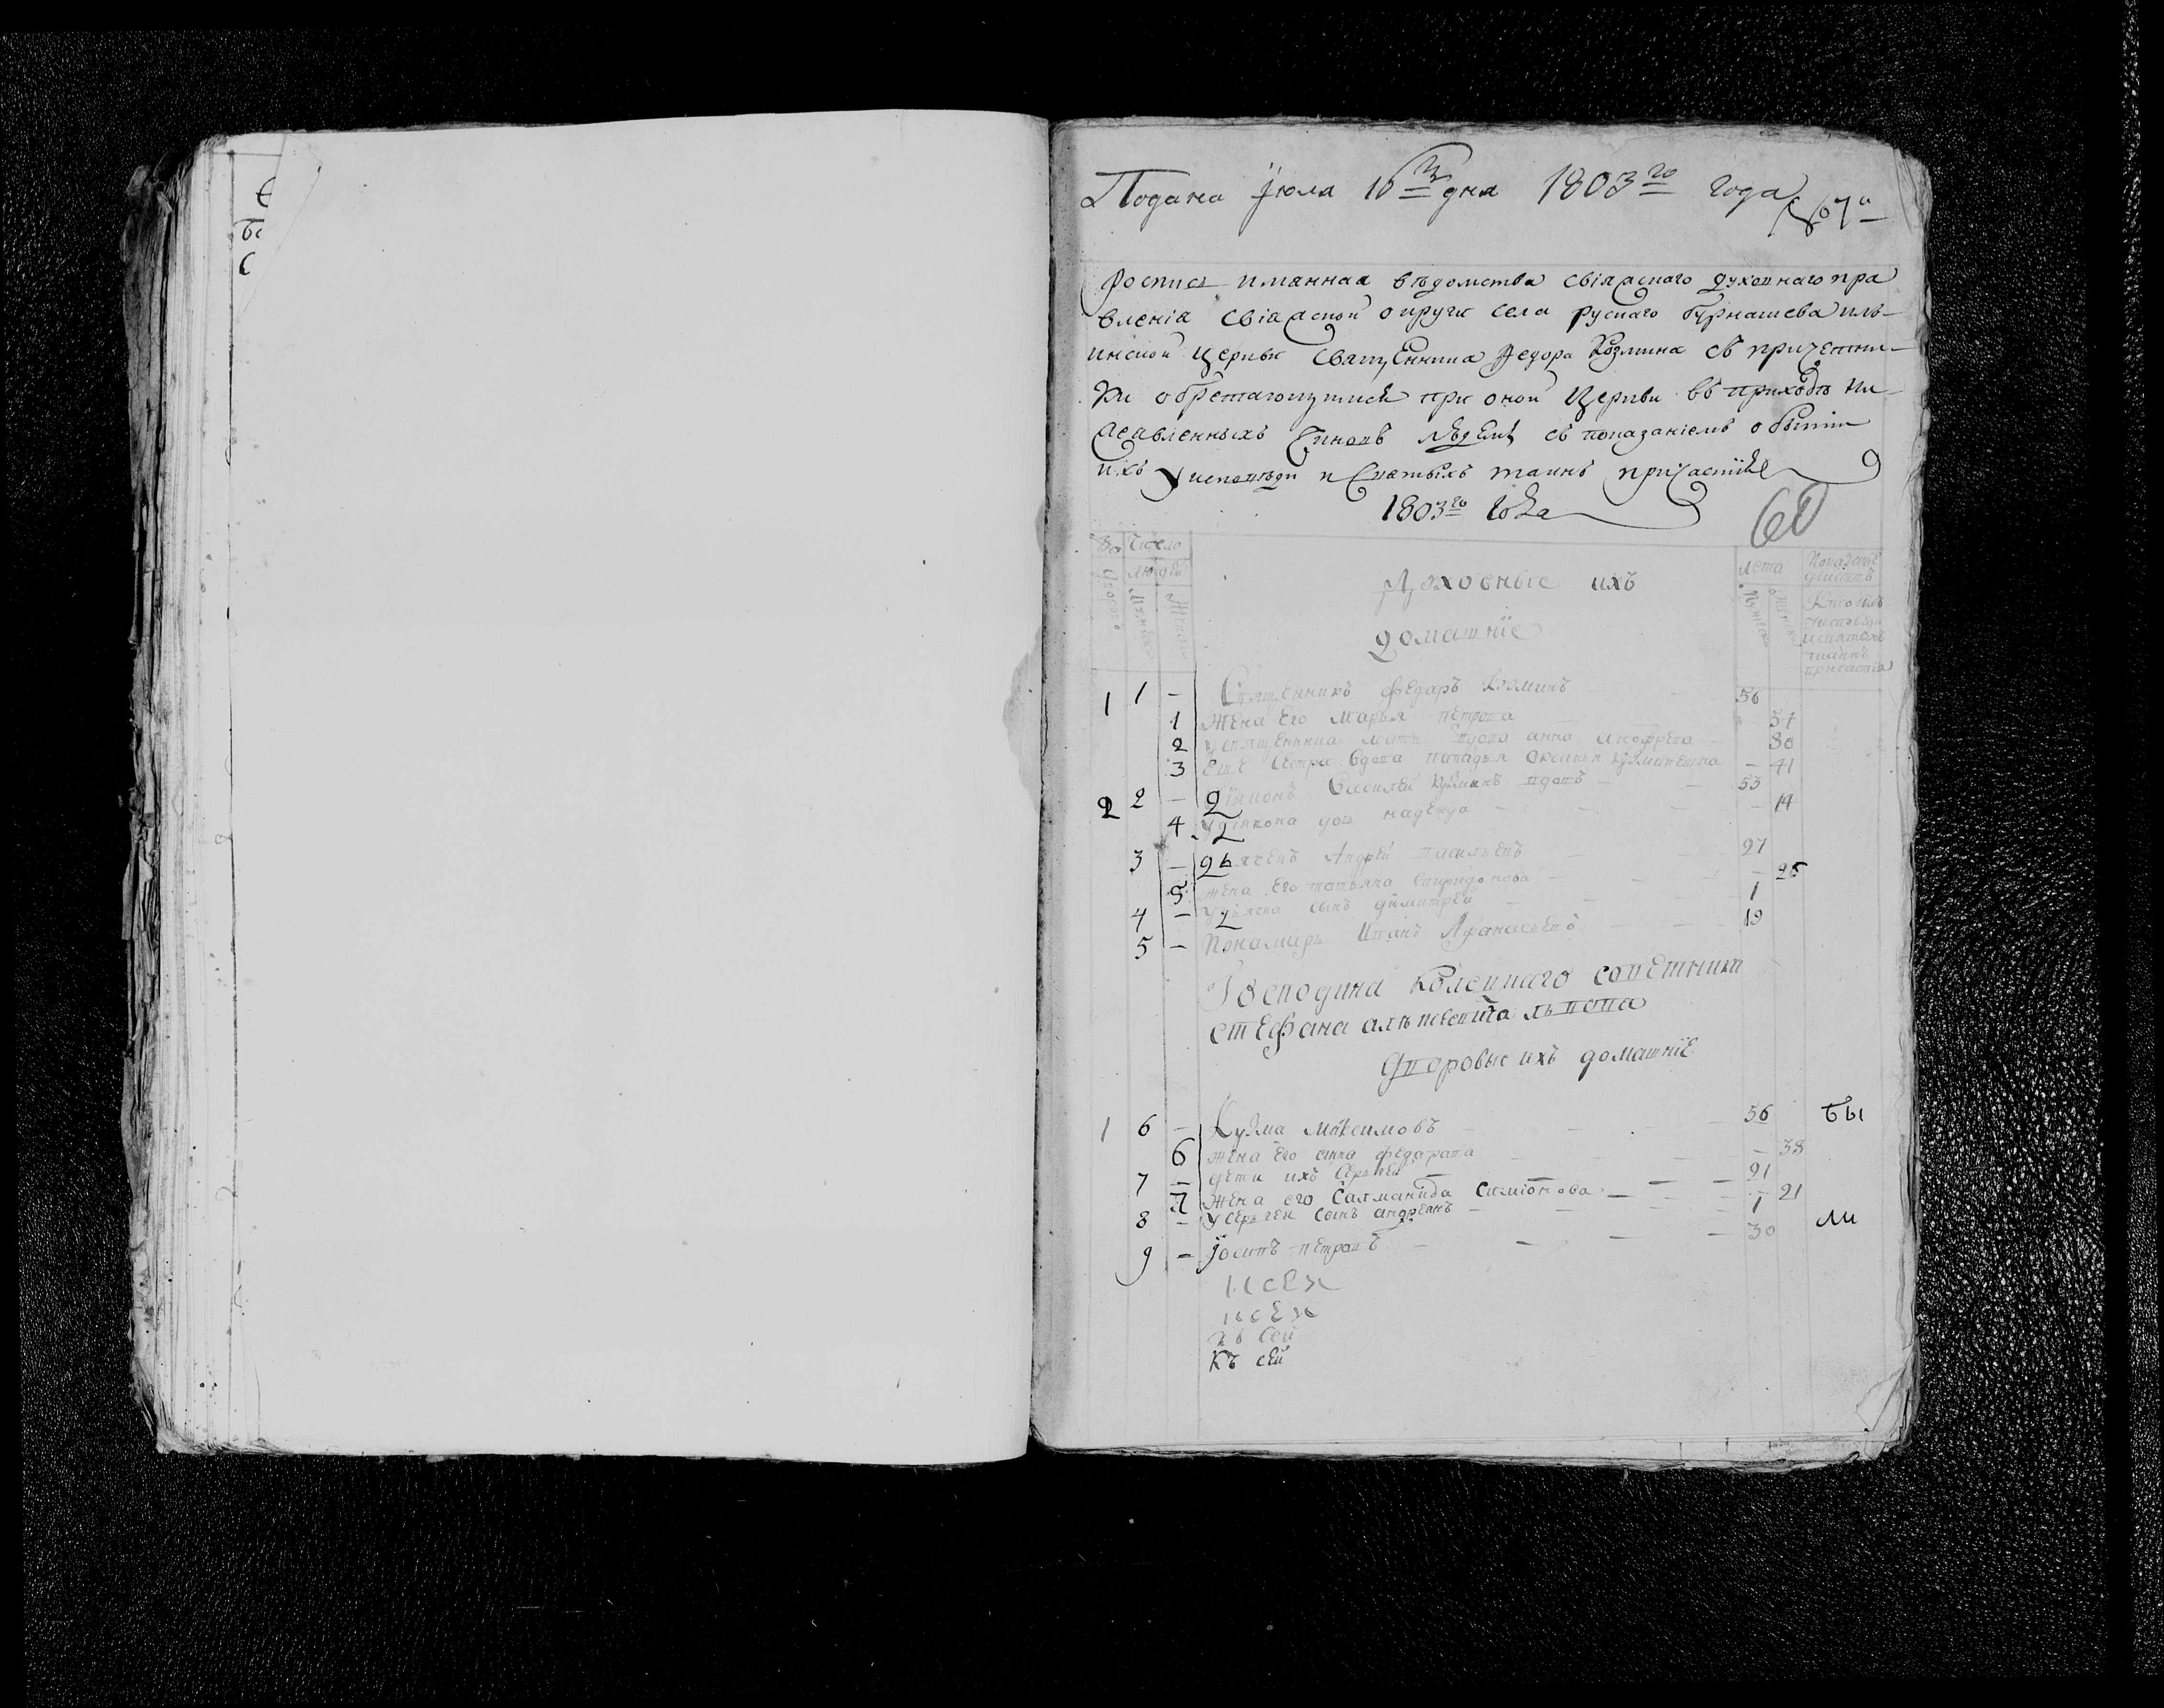 Подана Июля 10 дня 1803го года
№ 67й
Роспись имянная ведомства свіяскаго духовнаго пра
вленія свіаской округи села рускаго бурнашева иль-
инской церкви священника Федора Козмина съ причетни-
ки обретающимися при оной Церкви въ приходѣ ни-
жеавленныхъ Чиновъ людемъ съ показаніемъ о бытіи
ихъ у исповѣди и Святыхъ таинъ причастіе
1803го года
60
Число
людей
Лета
Показаніе
Духовные ихъ
домашніе
1 1 - Священникъ Федаръ Козминъ 56
1 Жена Его Марья петрова 54
2 У священника мать вдова анна 80
3 Еще сестра вдова попадья 41
2 2 - Діяконъ Василей Кузминъ вдовъ 53
4 У діякона дочь надежда - 14
3 - дьячекъ Андрей васильевъ 27
5 жена его татьяна спиридонова - 25
4 - У дьячка сынъ димитрей 1
5 - Пономарь Иванъ Афанасьевъ 19
Господина Колецкаго советника
стефана алексеича львова
Дворовые ихъ домашніе
1 6 - Кузма максимовъ 56 бы
6 жена Его анна федарава - 38
7 - дети ихъ Сергей 21
7 жена его Саламанида Симіонова - 21
8 - У Сергея сынъ андреянъ 1
9 - Іосипъ петровъ 30 ли
къ сей
къ сей